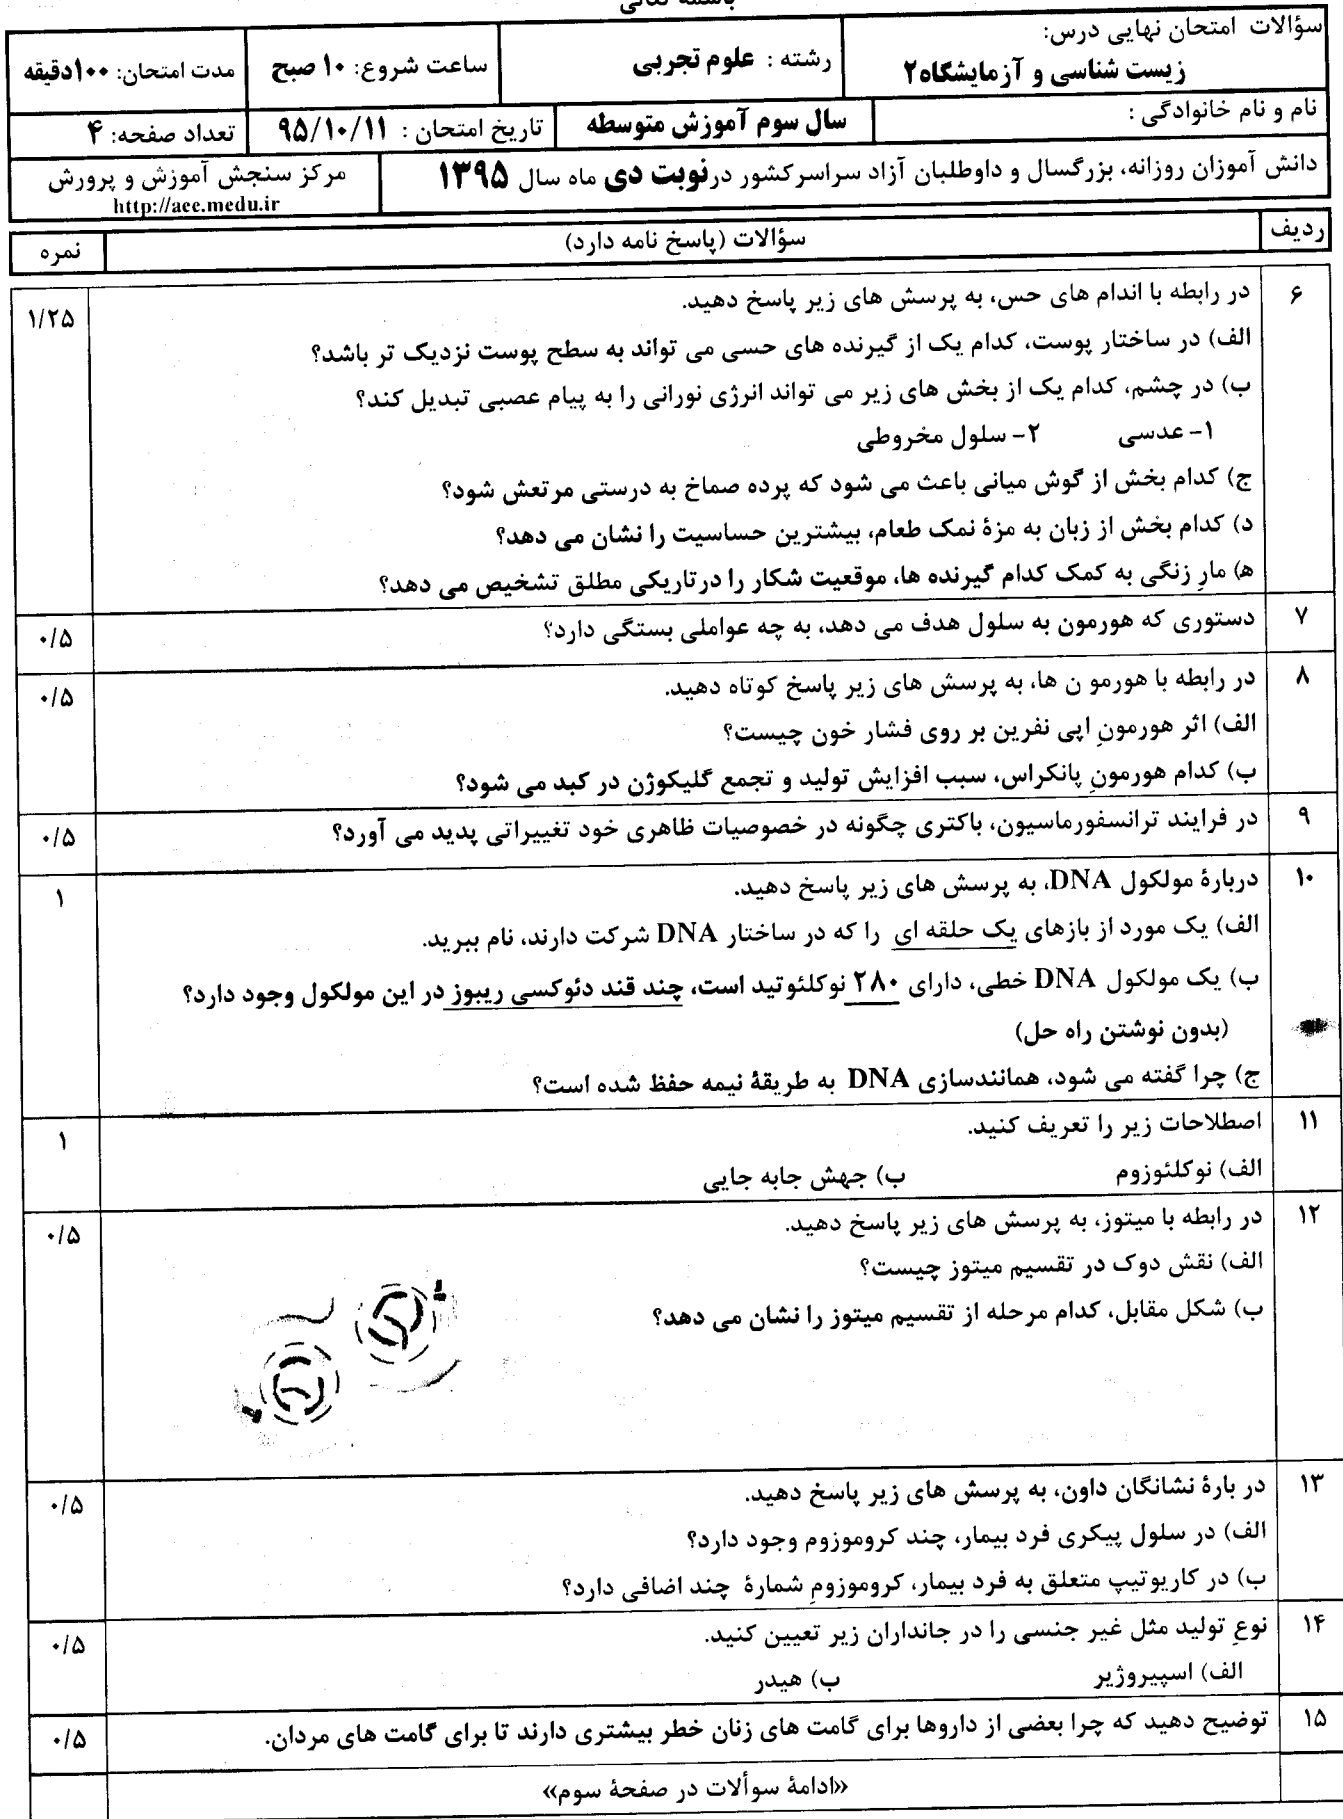 باسمه تعالی
سؤالات امتحان نهایی درس:
زیست شناسی و آزمایشگاه۲
رشته : علوم تجربی
ساعت شروع: ۱۰ صبح
مدت امتحان: ۱۰۰دقیقه
نام و نام خانوادگی :
سال سوم آموزش متوسطه
تاریخ امتحان : ۹۵/۱۰/۱۱
تعداد صفحه: ۴
دانش آموزان روزانه، بزرگسال و داوطلبان آزاد سراسرکشور درنوبت دی ماه سال ۱۳۹۵
مرکز سنجش آموزش و پرورش
http://aee.medu.ir
ردیف
سؤالات (پاسخ نامه دارد)
نمره
۶
در رابطه با اندام های حس، به پرسش های زیر پاسخ دهید.
۱/۲۵
الف) در ساختار پوست، کدام یک از گیرنده های حسی می تواند به سطح پوست نزدیک تر باشد؟
ب) در چشم، کدام یک از بخش های زیر می تواند انرژی نورانی را به پیام عصبی تبدیل کند؟
۱- عدسی ۲- سلول مخروطی
ج) کدام بخش از گوش میانی باعث می شود که پرده صماخ به درستی مرتعش شود؟
د) کدام بخش از زبان به مزهٔ نمک طعام، بیشترین حساسیت را نشان می دهد؟
ه) مارِ زنگی به کمک کدام گیرنده ها، موقعیت شکار را درتاریکی مطلق تشخیص می دهد؟
۷
دستوری که هورمون به سلول هدف می دهد، به چه عواملی بستگی دارد؟
۰/۵
۸
در رابطه با هورمو ن ها، به پرسش های زیر پاسخ کوتاه دهید.
۰/۵
الف) اثر هورمونِ اپی نفرین بر روی فشار خون چیست؟
ب) کدام هورمونِ پانکراس، سبب افزایش تولید و تجمع گلیکوژن در کبد می شود؟
۹
در فرایند ترانسفورماسیون، باکتری چگونه در خصوصیات ظاهری خود تغییراتی پدید می آورد؟
۰/۵
۱۰
دربارهٔ مولکول DNA، به پرسش های زیر پاسخ دهید.
۱
الف) یک مورد از بازهای یک حلقه ای را که در ساختار DNA شرکت دارند، نام ببرید.
ب) یک مولکول DNA خطی، دارای ۲۸۰ نوکلئوتید است، چند قند دئوکسی ریبوز در این مولکول وجود دارد؟
(بدون نوشتن راه حل)
ج) چرا گفته می شود، همانندسازی DNA به طریقهٔ نیمه حفظ شده است؟
۱۱
اصطلاحات زیر را تعریف کنید.
۱
الف) نوکلئوزوم ب) جهش جابه جایی
۱۲
در رابطه با میتوز، به پرسش های زیر پاسخ دهید.
۰/۵
الف) نقش دوک در تقسیم میتوز چیست؟
ب) شکل مقابل، کدام مرحله از تقسیم میتوز را نشان می دهد؟
۱۳
در بارهٔ نشانگان داون، به پرسش های زیر پاسخ دهید.
۰/۵
الف) در سلول پیکری فرد بیمار، چند کروموزوم وجود دارد؟
ب) در کاریوتیپ متعلق به فرد بیمار، کروموزومِ شمارهٔ چند اضافی دارد؟
۱۴
نوعِ تولید مثل غیر جنسی را در جانداران زیر تعیین کنید.
۰/۵
الف) اسپیروژیر ب) هیدر
۱۵
توضیح دهید که چرا بعضی از داروها برای گامت های زنان خطر بیشتری دارند تا برای گامت های مردان.
۰/۵
«ادامهٔ سوألات در صفحهٔ سوم»